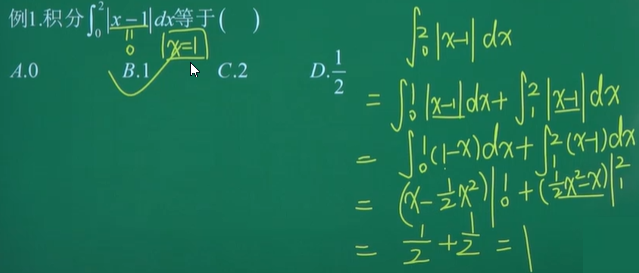 例1.积分∫₀²|x−1|dx等于(　)
=
0
x=1
A.0　B.1　C.2　D.1/2
∫₀²|x-1|dx
= ∫₀¹|x-1|dx + ∫₁²|x-1|dx
= ∫₀¹(1-x)dx + ∫₁²(x-1)dx
= (x-½x²)|₀¹ + (½x²-x)|₁²
= ½ + ½ = 1